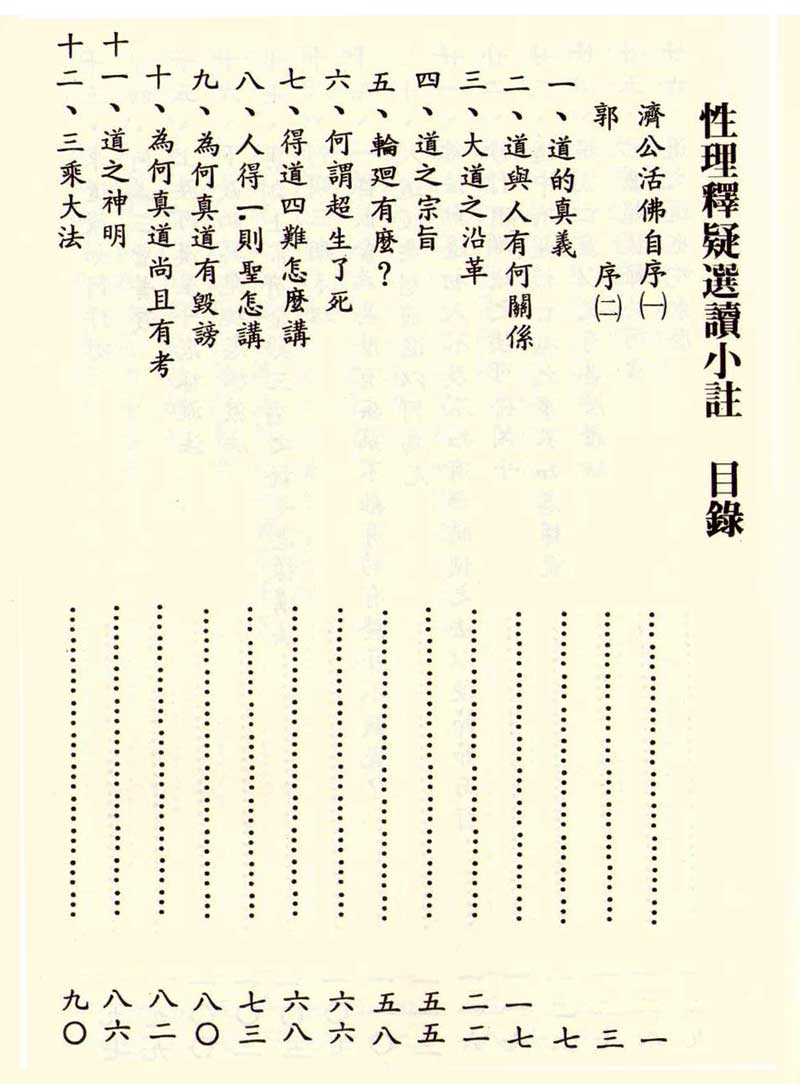 性理釋疑選讀小註 目錄
濟公活佛自序㈠……………………一
郭 序㈡……………………三
一、道的真義……………………七
二、道與人有何關係……………………一七
三、大道之沿革……………………二二
四、道之宗旨……………………五五
五、輪廻有麼？……………………五八
六、何謂超生了死……………………六六
七、得道四難怎麼講……………………六八
八、人得一則聖怎講……………………七三
九、為何真道有毀謗……………………八〇
十、為何真道尚且有考……………………八二
十一、道之神明……………………八六
十二、三乘大法……………………九〇